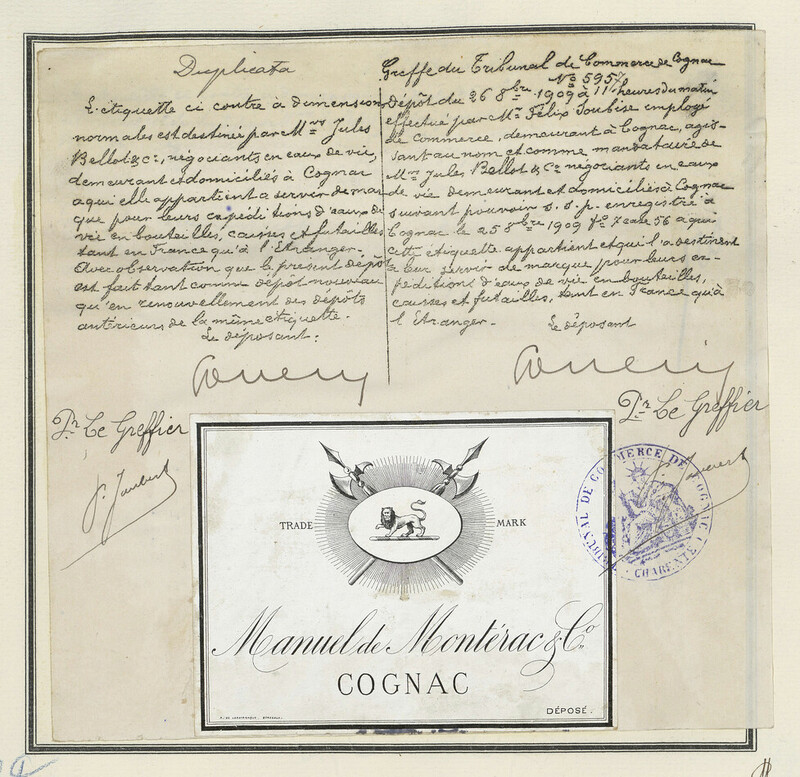 Duplicata
L'étiquette ci contre à dimension
normales est destinée par Mrs Jules
Bellot & Cie, négociants en eaux de vie,
demeurant et domiciliés à Cognac
a qui elle appartient a servir de mar
que pour leurs expéditions d'eaux de
vie en bouteilles, caisses et futailles
tant en France qu'à l'Etranger.
Avec observation que le present dépôt
est fait tant comme dépôt nouveau
qu'en renouvellement des dépôts
antérieurs de la même étiquette.
Le déposant:
Pr Le Greffier
Greffe du Tribunal de Commerce de Cognac
No 5957
Dépôt du 26 8bre 1909 à 11 heures du matin
effectué par Mr Félix Soubise employé
de Commerce, demeurant à Cognac, agis-
sant au nom et comme mandataire de
Mrs Jules Bellot & Cie négociants en eaux
de vie demeurant et domiciliés à Cognac
suivant pouvoir s. s. p. enregistré à
Cognac le 25 8bre 1909 fo 7 case 56 a qui
cette étiquette appartient et qui l'a destinent
a leur servir de marque pour leurs ex-
péditions d'eaux de vie en bouteilles,
caisses et futailles, tant en France qu'à
l'Etranger.
Le déposant
Pr Le Greffier
TRIBUNAL DE COMMERCE DE COGNAC
CHARENTE
TRADE MARK
Manuel de Montérac & Co
COGNAC
DÉPOSÉ